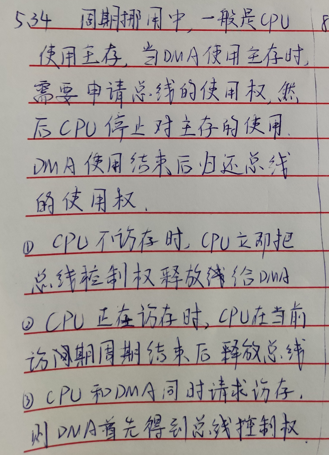 5.34 周期挪用中,一般是CPU
使用主存,当DMA使用主存时,
需要申请总线的使用权,然
后CPU停止对主存的使用.
DMA使用结束后归还总线
的使用权.
① CPU不访存时,CPU立即把
总线控制权释放给DMA
② CPU正在访存时,CPU在当前
访问周期结束后释放总线
③ CPU和DMA同时请求访存,
则DMA首先得到总线控制权.